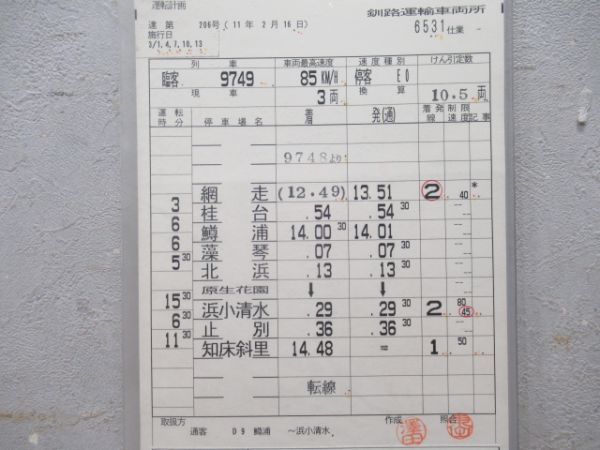 運転計画
達第 206号(11年 2月16日)
釧路運輸車両所
施行日
3/1,4,7,10,13
6531仕業
列車 車両最高速度 速度種別 けん引定数
臨客 9749 85KM/H 停客 E0
現車 3両 換算 10.5両
運転時分 停車場名 着 発(通) 着発線 制限速度 記事
9748より
網走 (12.49) 13.51 2 40 *
3
桂台 .54 .54 30
6
鱒浦 14.00 30 14.01
6
藻琴 .07 .07 30
5 30
北浜 .13 .13 30
原生花園 ↓ ↓
15 30
浜小清水 .29 .29 30 2 80 45
6 30
止別 .36 .36 30
11 30
知床斜里 14.48 = 1 50
転線
取扱方 作成 照合
通客 D9 鱒浦 ～浜小清水